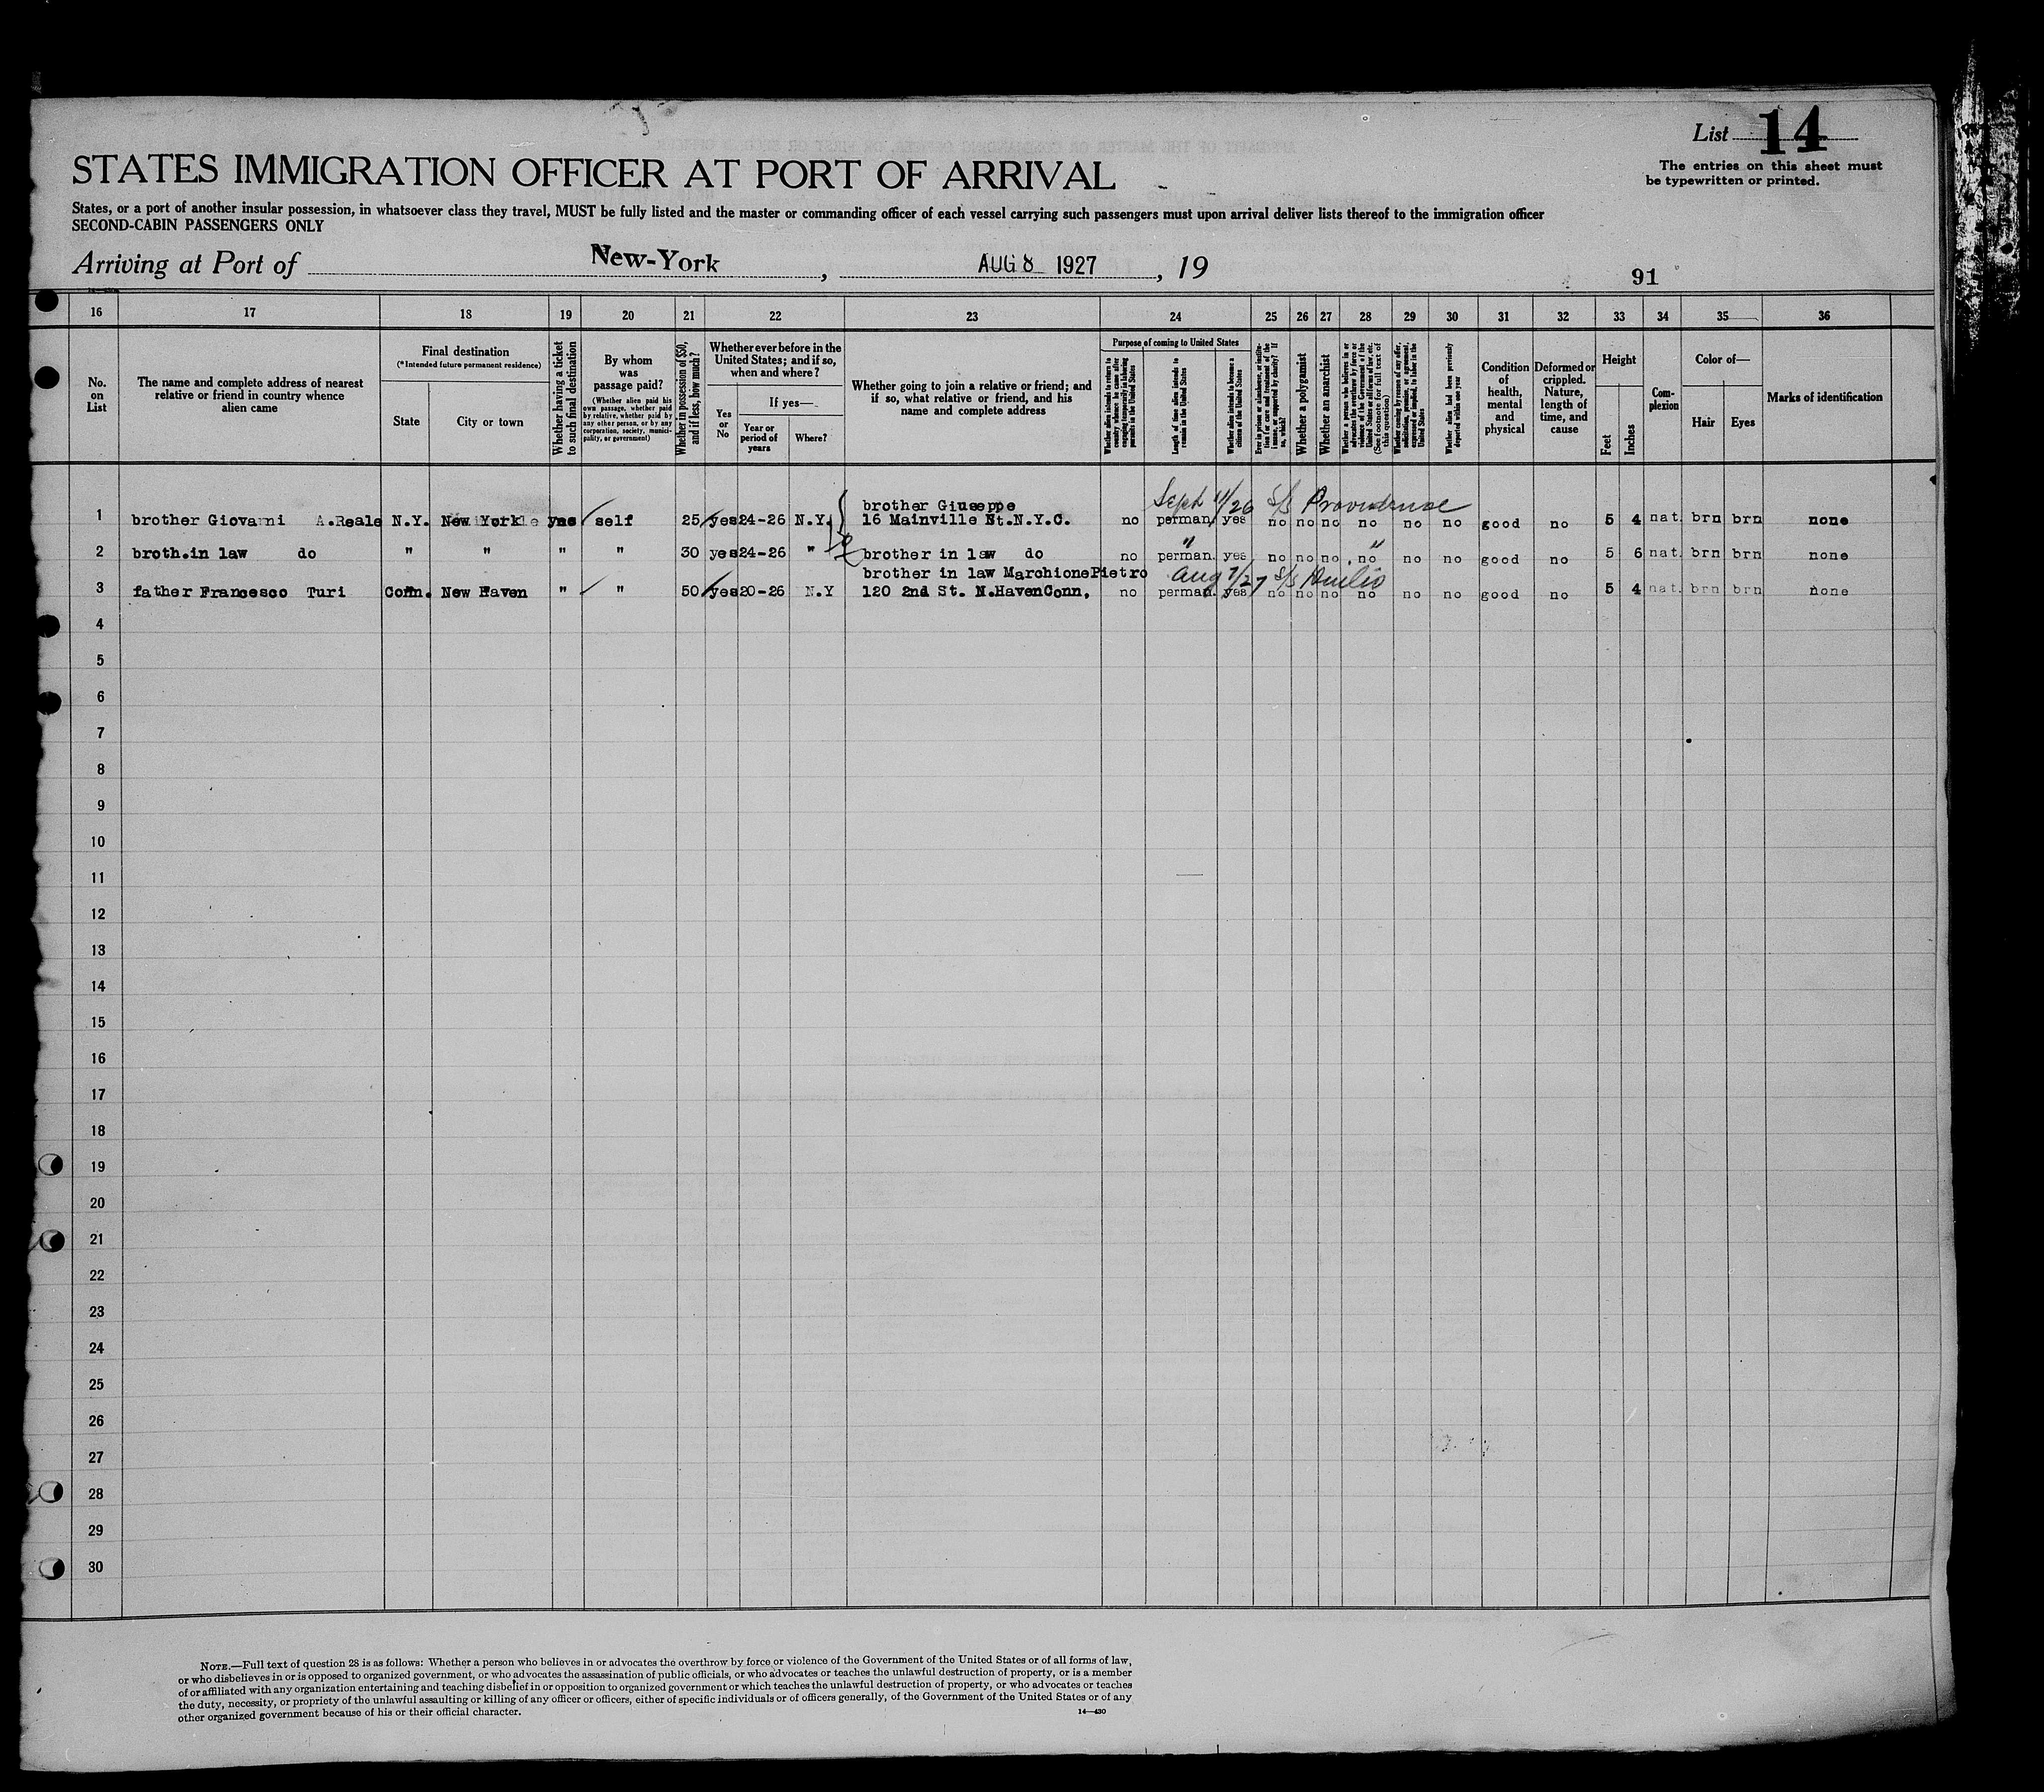 List 14
The entries on this sheet must
be typewritten or printed.
STATES IMMIGRATION OFFICER AT PORT OF ARRIVAL
States, or a port of another insular possession, in whatsoever class they travel, MUST be fully listed and the master or commanding officer of each vessel carrying such passengers must upon arrival deliver lists thereof to the immigration officer
SECOND-CABIN PASSENGERS ONLY
Arriving at Port of New-York, AUG 8 1927, 19
91
16 17 18 19 20 21 22 23 24 25 26 27 28 29 30 31 32 33 34 35 36
No.
on
List
The name and complete address of nearest
relative or friend in country whence
alien came
Final destination
(*Intended future permanent residence)
State
City or town
Whether having a ticket
to such final destination
By whom
was
passage paid?
(Whether alien paid his
own passage, whether paid
by relative, whether paid by
any other person, or by any
corporation, society, munici-
pality, or government)
Whether in possession of $50,
and if less, how much?
Whether ever before in the
United States; and if so,
when and where?
Yes
or
No
If yes—
Year or
period of
years
Where?
Whether going to join a relative or friend; and
if so, what relative or friend, and his
name and complete address
Purpose of coming to United States
Whether alien intends to return to
country whence he came after
engaging temporarily in laboring
pursuits in the United States
Length of time alien intends to
remain in the United States
Whether alien intends to become a
citizen of the United States
Ever in prison or almshouse, or institu-
tion for care and treatment of the
insane, or supported by charity? If
so, which?
Whether a polygamist
Whether an anarchist
Whether a person who believes in or
advocates the overthrow by force or
violence of the Government of the
United States or all forms of law, etc.
(See footnote for full text of
this question)
Whether coming by reason of any offer,
solicitation, promise, or agreement,
expressed or implied, to labor in the
United States
Whether alien had been previously
deported within one year
Condition
of
health,
mental
and
physical
Deformed or
crippled.
Nature,
length of
time, and
cause
Height
Feet
Inches
Com-
plexion
Color of—
Hair
Eyes
Marks of identification
brother Giuseppe Sept 11/26 S/S Providence
1 brother Giovanni A.Reale N.Y. New York yes self 25 yes 24-26 N.Y. 16 Mainville St.N.Y.C. no perman. yes no no no no no no good no 5 4 nat. brn brn none
2 broth.in law do " " " " 30 yes 24-26 " brother in law do no perman. yes no no no no no no good no 5 6 nat. brn brn none
brother in law Marchione Pietro Aug 7/27 S/S
3 father Francesco Turi Conn. New Haven " " 50 yes 20-26 N.Y 120 2nd St. N.Haven Conn. no perman. yes no no no no no no good no 5 4 nat. brn brn none
4
5
6
7
8
9
10
11
12
13
14
15
16
17
18
19
20
21
22
23
24
25
26
27
28
29
30
NOTE.—Full text of question 28 is as follows: Whether a person who believes in or advocates the overthrow by force or violence of the Government of the United States or of all forms of law,
or who disbelieves in or is opposed to organized government, or who advocates the assassination of public officials, or who advocates or teaches the unlawful destruction of property, or is a member
of or affiliated with any organization entertaining and teaching disbelief in or opposition to organized government or which teaches the unlawful destruction of property, or who advocates or teaches
the duty, necessity, or propriety of the unlawful assaulting or killing of any officer or officers, either of specific individuals or of officers generally, of the Government of the United States or of any
other organized government because of his or their official character.
14—430